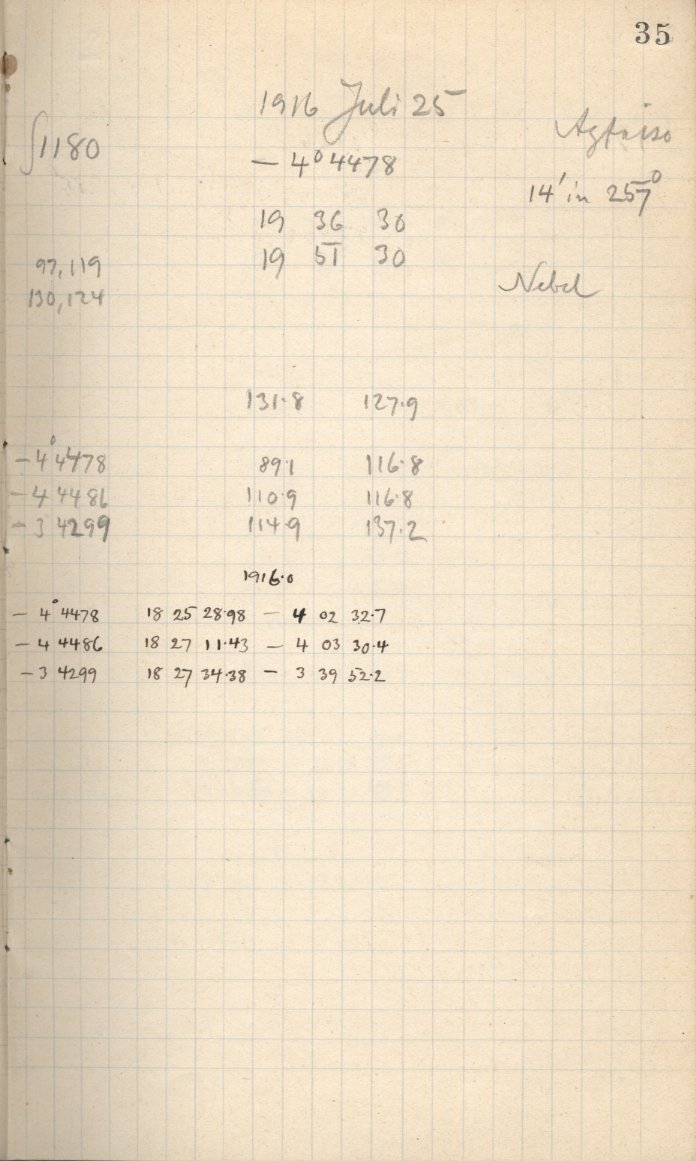 35
1916 Juli 25
∫1180
— 4° 4478
14' in 257°
19 36 30
97,119 19 51 30
130,124 Nebel
131.8 127.9
— 4° 4478 89.1 116.8
— 4 4486 110.9 116.8
— 3 4299 114.9 137.2
1916.0
— 4° 4478 18 25 28.98 — 4 02 32.7
— 4 4486 18 27 11.43 — 4 03 30.4
— 3 4299 18 27 34.38 — 3 39 52.2